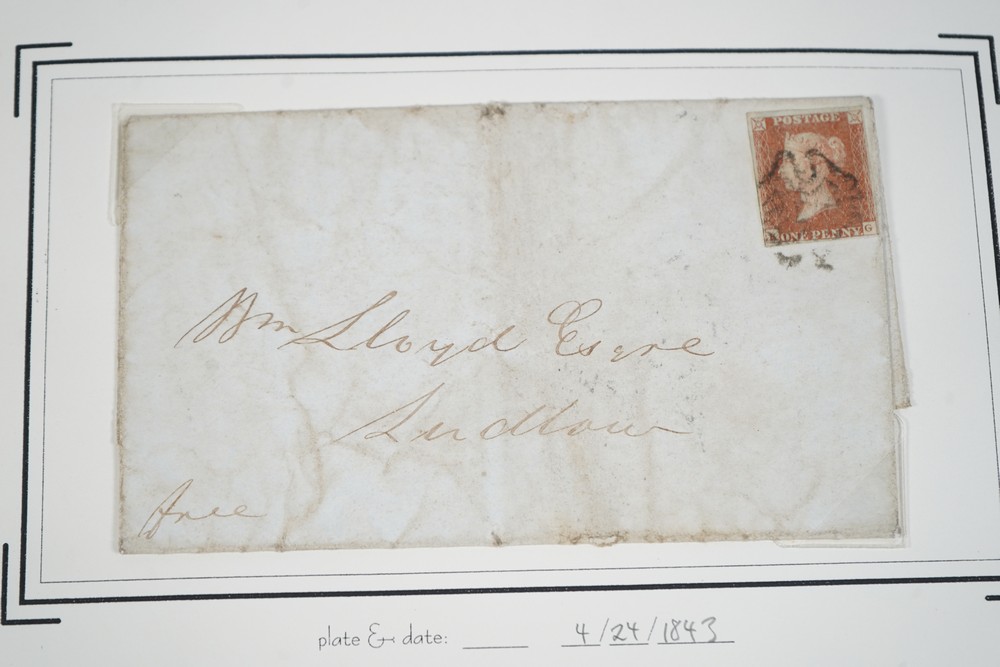 POSTAGE
ONE PENNY G
Wm Lloyd Esqre
Ludlow
Free
plate & date: ____ 4/24/1843